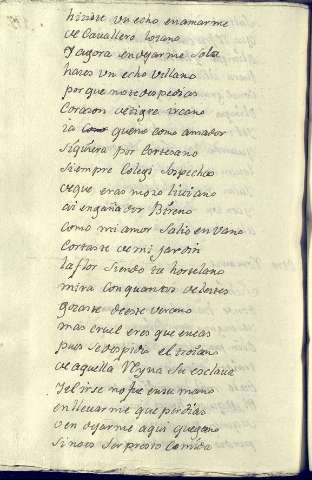 hiziste un echo en amarme
de Cavallero lozano
Y agora en dejarme sola
hazes un echo villano
porque no te despedias
Corazon de tigre ircano
ya que no como amador
siquiera por Cortesano
siempre Colegi sospechas
de que eras mozo liviano
ai engañador Bireno
como mi amor salio en vano
Cortaste de mi jardin
la flor siendo tu hortelano
mira con quantos deleites
gozaste de este verano
mas cruel eres que eneas
pues se despidio el troiano
de aquella Reyna su esclava
Y el irse no fue en su mano
en llevarme que perdias
o en dejarme aqui que gano
sino es ser presto Comida